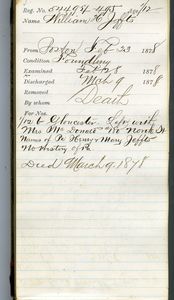 Reg. No. 54498
Name William H. Jeffts
From Boston Feb 23 1878
Condition Foundling
Examined Feb 28 1878
Discharged Mah 9 1878
Removed Death
By whom
For Nos.
Gloucester. Left with
Mrs McDonald No.
Names of Pa Henry & Mary Jeffts
No history of Pa.
Died March 9. 1878